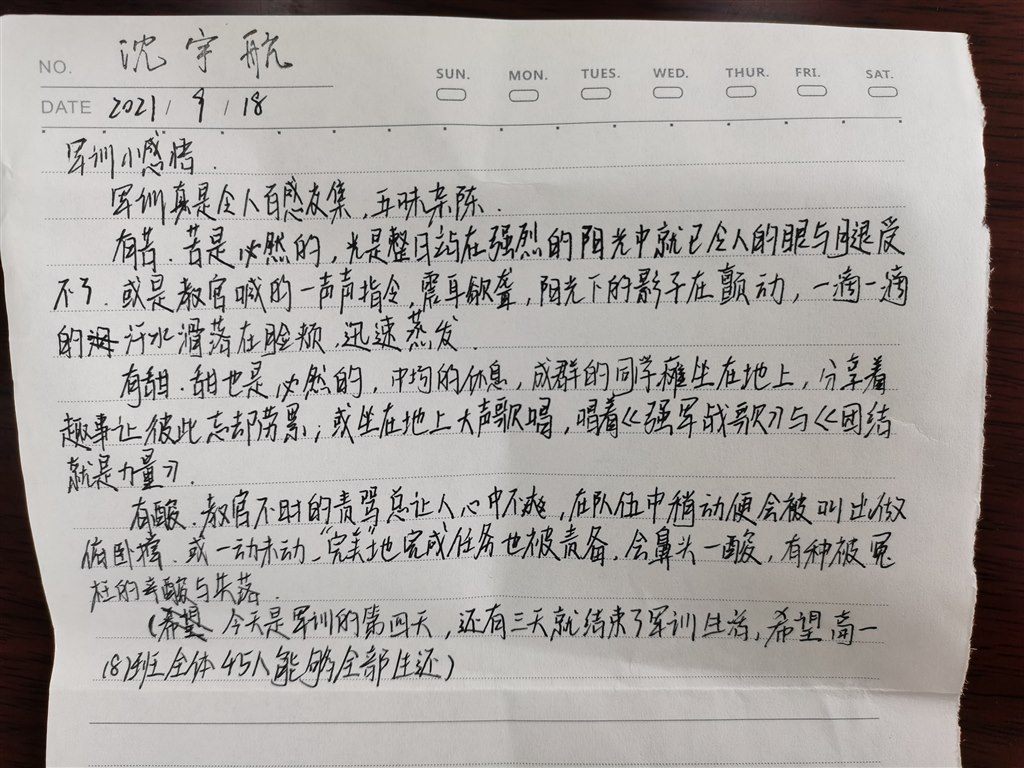 NO. 沈宇航
SUN. MON. TUES. WED. THUR. FRI. SAT.
DATE 2021 / 9 / 18
军训小感悟.
军训真是令人百感友集，五味杂陈.
有苦.苦是必然的，光是整日站在强烈的阳光中就已令人的眼与腿受
不了.或是教官喊的一声声指令，震耳欲聋，阳光下的影子在颤动，一滴一滴
的汗水滑落在脸颊，迅速蒸发.
有甜.甜也是必然的，中均的休息，成群的同学瘫坐在地上，分享着
趣事让彼此忘却劳累；或坐在地上大声歌唱，唱着《强军战歌》与《团结
就是力量》.
有酸.教官不时的责骂总让人心中不爽，在队伍中稍动便会被叫出做
俯卧撑.或一动未动.“完美”地完成任务也被责备.会鼻头一酸，有种被冤
枉的辛酸与失落.
（希望 今天是军训的第四天，还有三天就结束了军训生活，希望高一
(8)班全体45人能够全部生还）